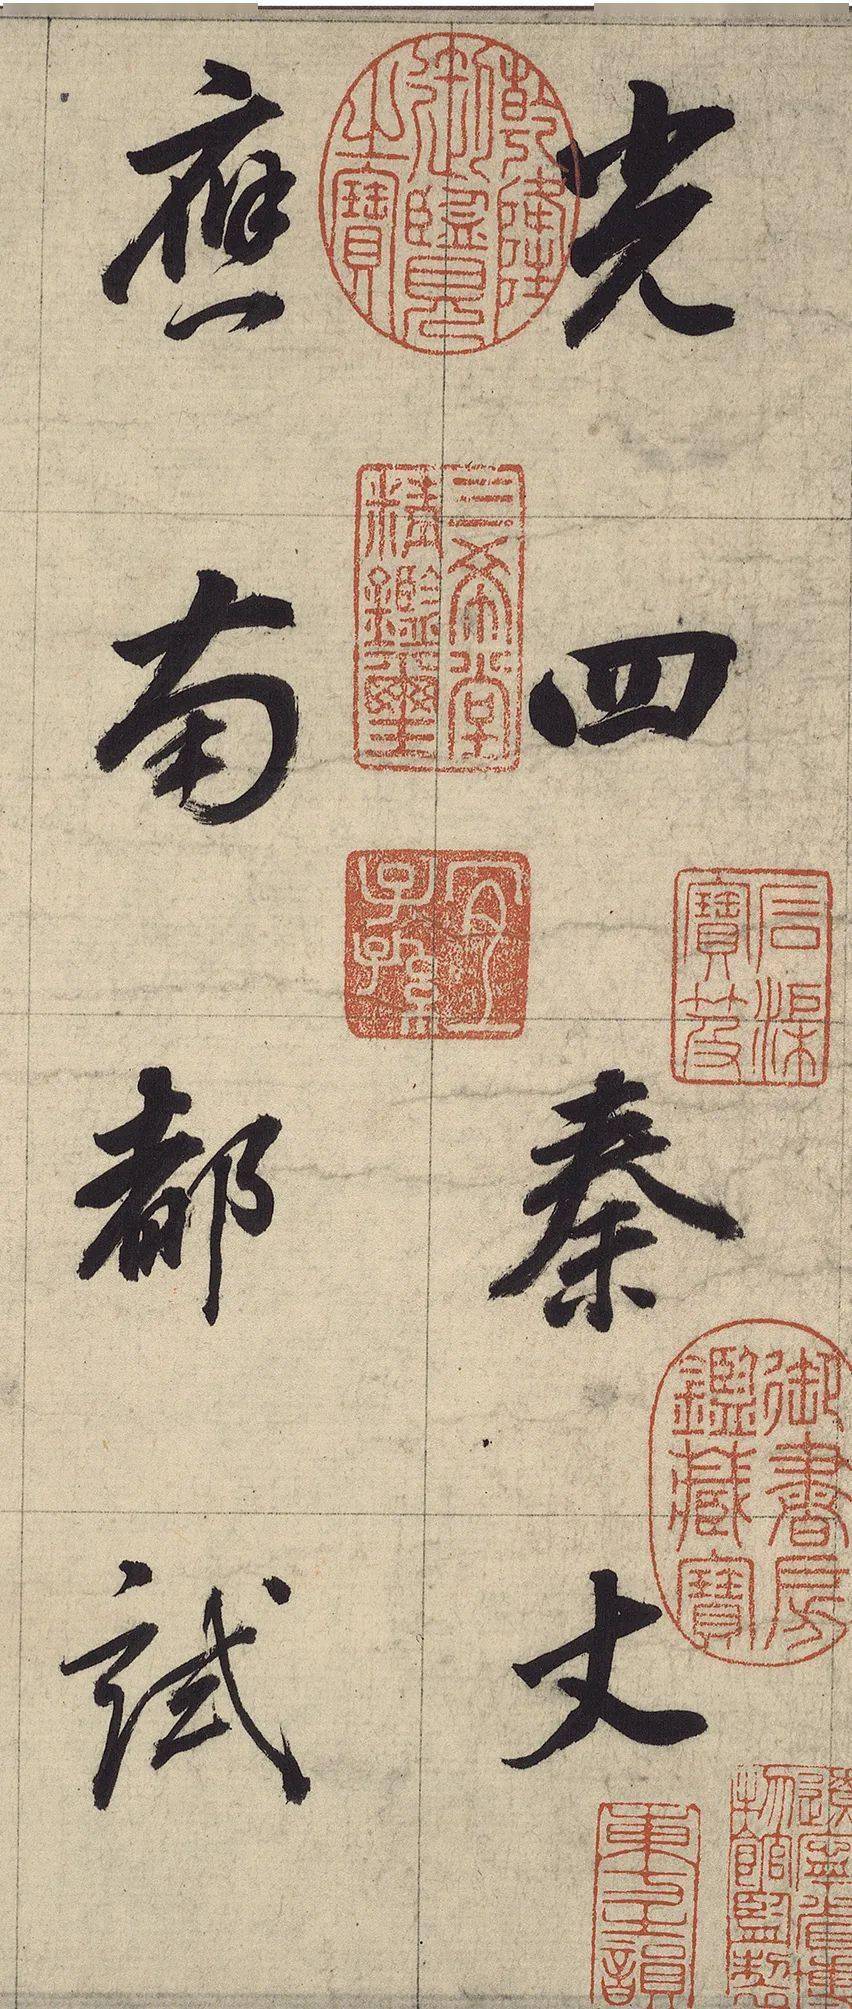 光四秦丈
應南都試
乾隆御覽之寶
三希堂精鑑璽
宜子孫
石渠寶笈
御書房鑑藏寶